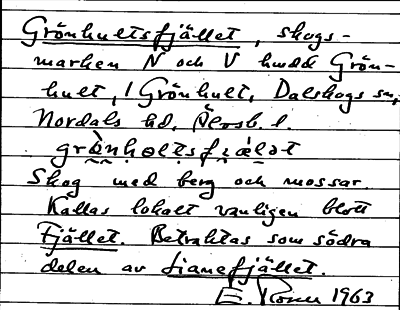 Grönhultsfjället, skogs-
marken N och V
hult, 1 Grönhult, Dalskogs sn,
Nordals hd, Älvsb. l.
Skog med berg och mossar.
Kallas lokalt vanligen blott
Fjället. Betraktas som södra
delen av Lianefjället.
E. 1963